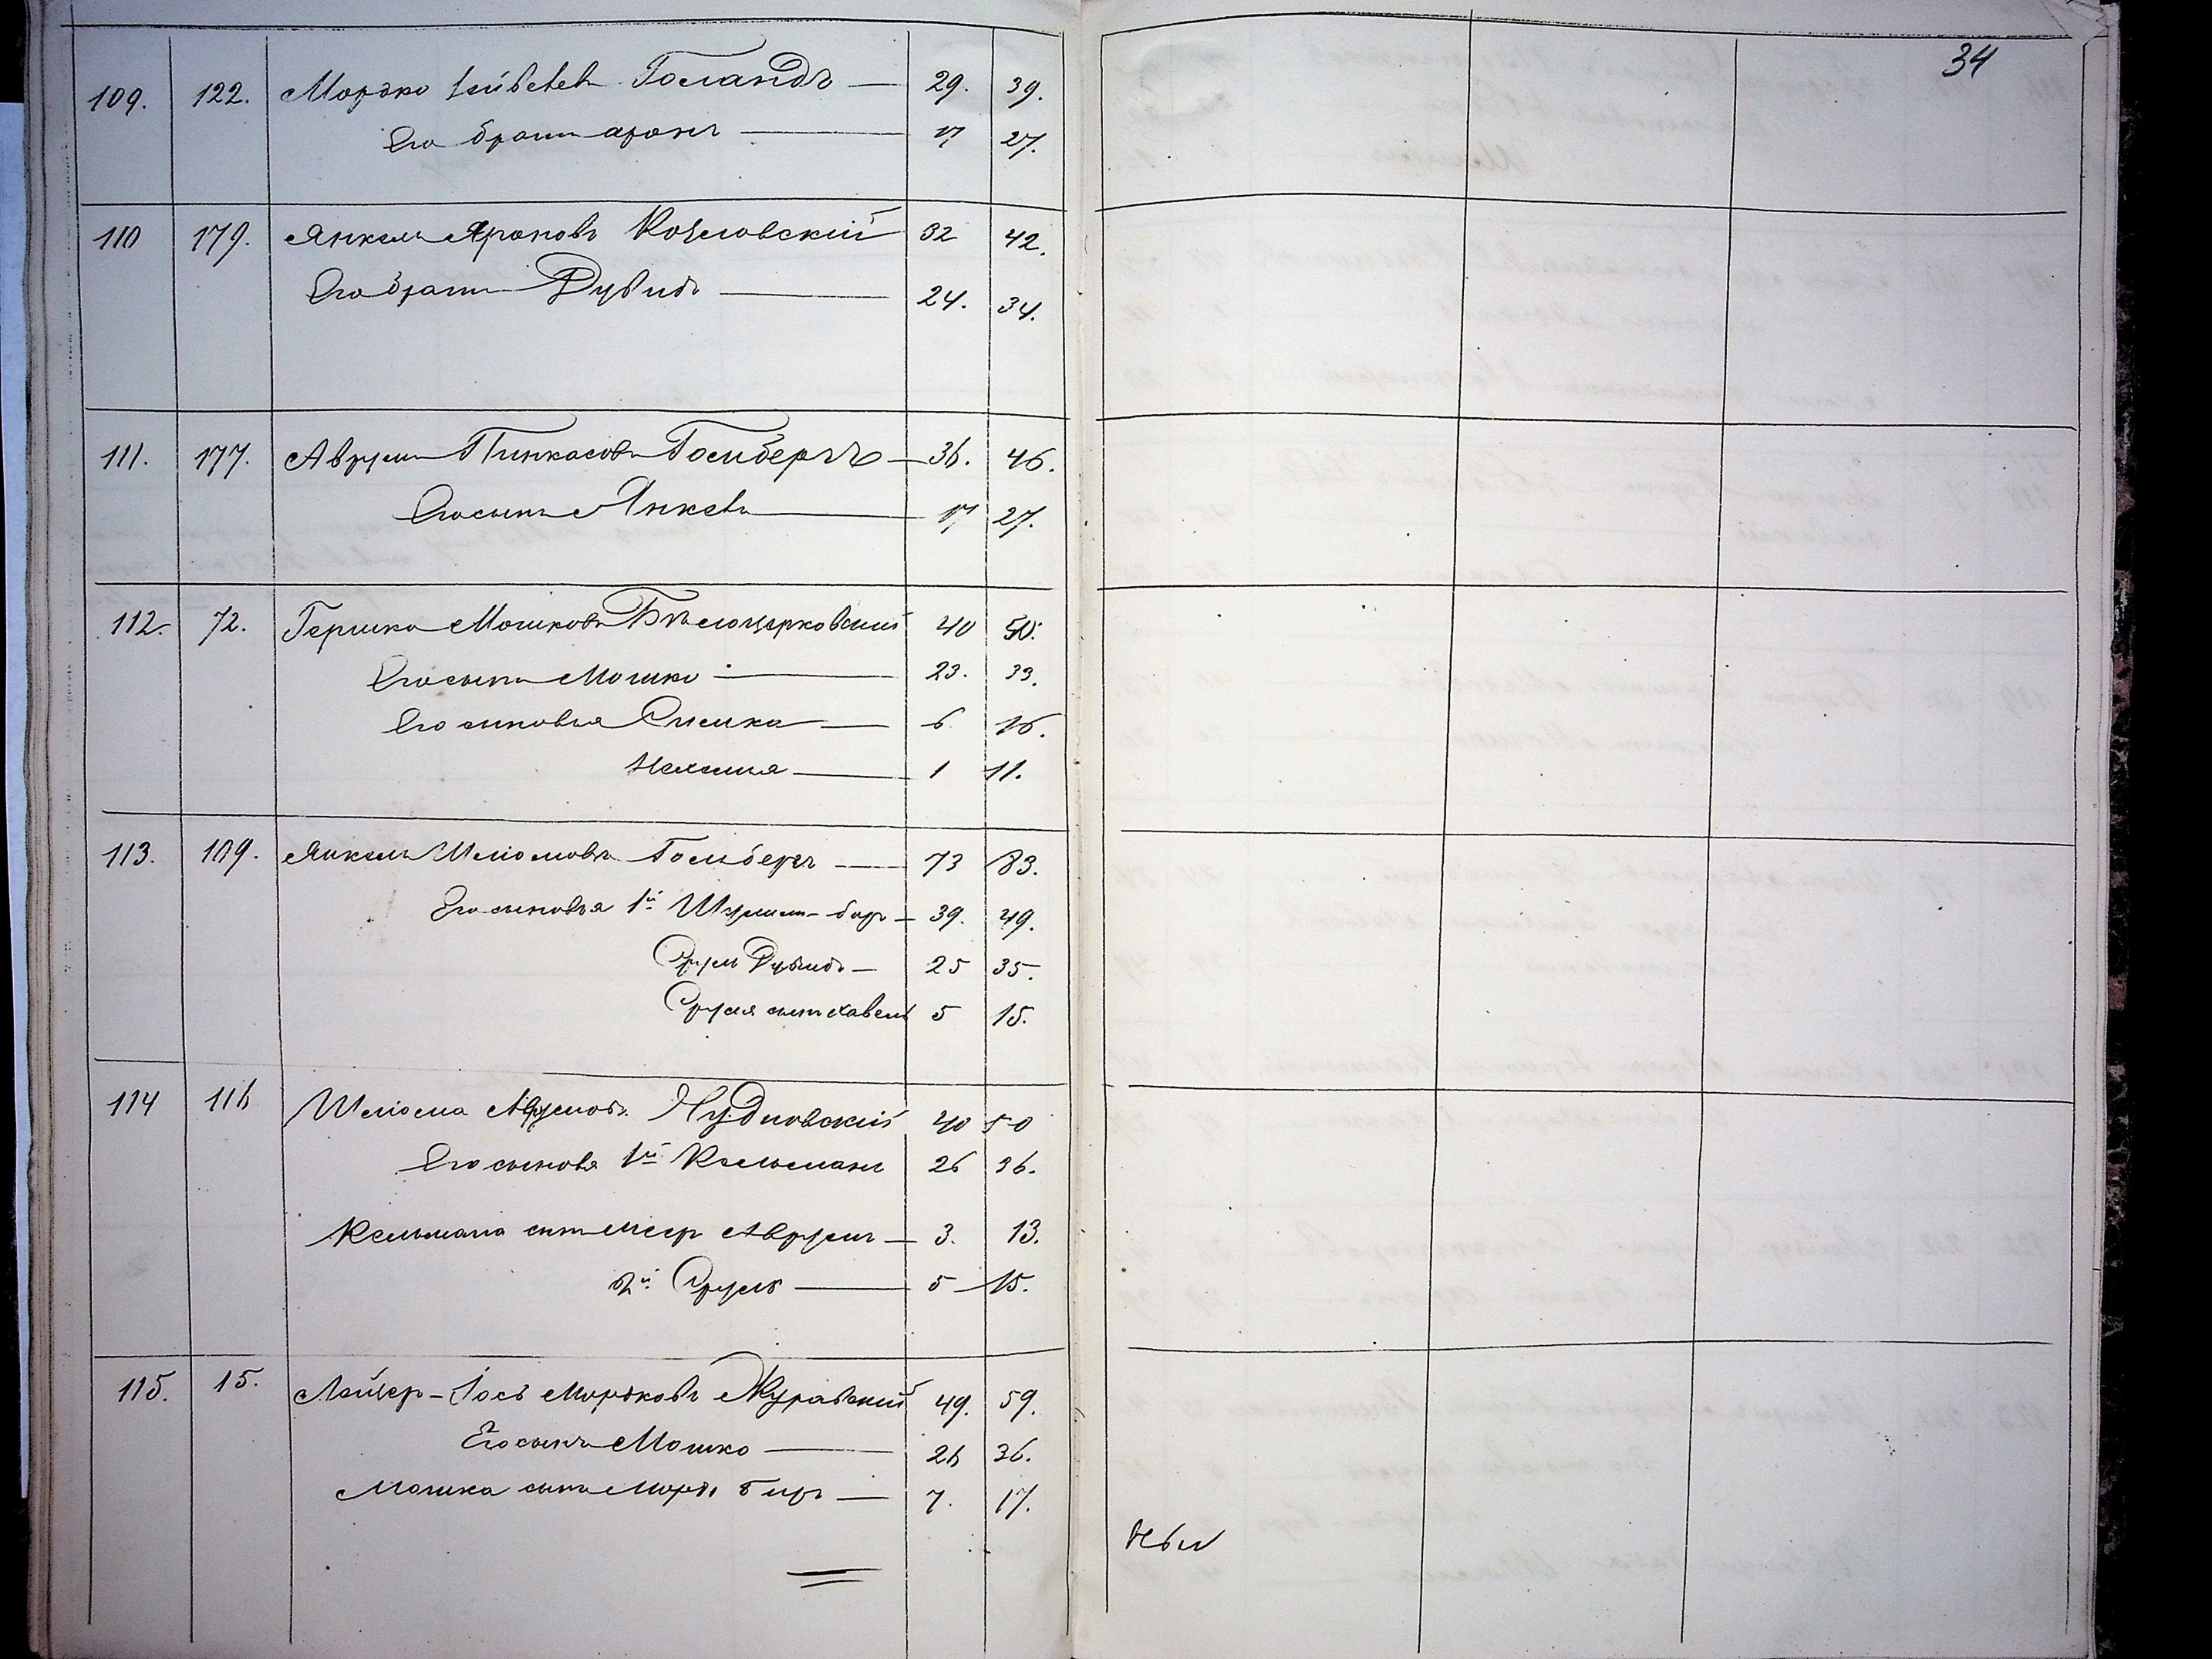 34
109. 122. Мордко Лейбовъ Голандъ — 29. 39.
Его братъ Аронъ — 17 27.
110 179. Янкель Ароновъ Козловскій 32 42.
Его братъ Дувидъ — 24. 34.
111. 177. Аврумъ Пинкасовъ Гольбергъ — 36. 46.
Его сынъ Янкель — 17 27.
112. 72. Гершко Мошковъ Бѣлоцерковскій 40 50.
Его сынъ Мошко — 23. 33.
Его сыновья Сисинка — 6. 16.
Нехемья — 1 11.
113. 109. Янкель Шліомовъ Гольбергъ — 73 83.
Его сыновья 1й Шулимъ-беръ — 39. 49.
Сруль Дувидъ — 25 35.
Сруля сынъ 5 15.
114 116 Шліома Аврумовъ Чудновскій 40 50
Его сыновья 1й Кельманъ 26 36.
Кельмана сынъ Меер Аврумъ — 3. 13.
2й Сруль — 5 — 15.
115. 15. Лейзер-Іось Мордковъ Журавскій 49. 59.
Его сынъ Мошко — 26 36.
Мошка сынъ Мордко Беръ — 7. 17.